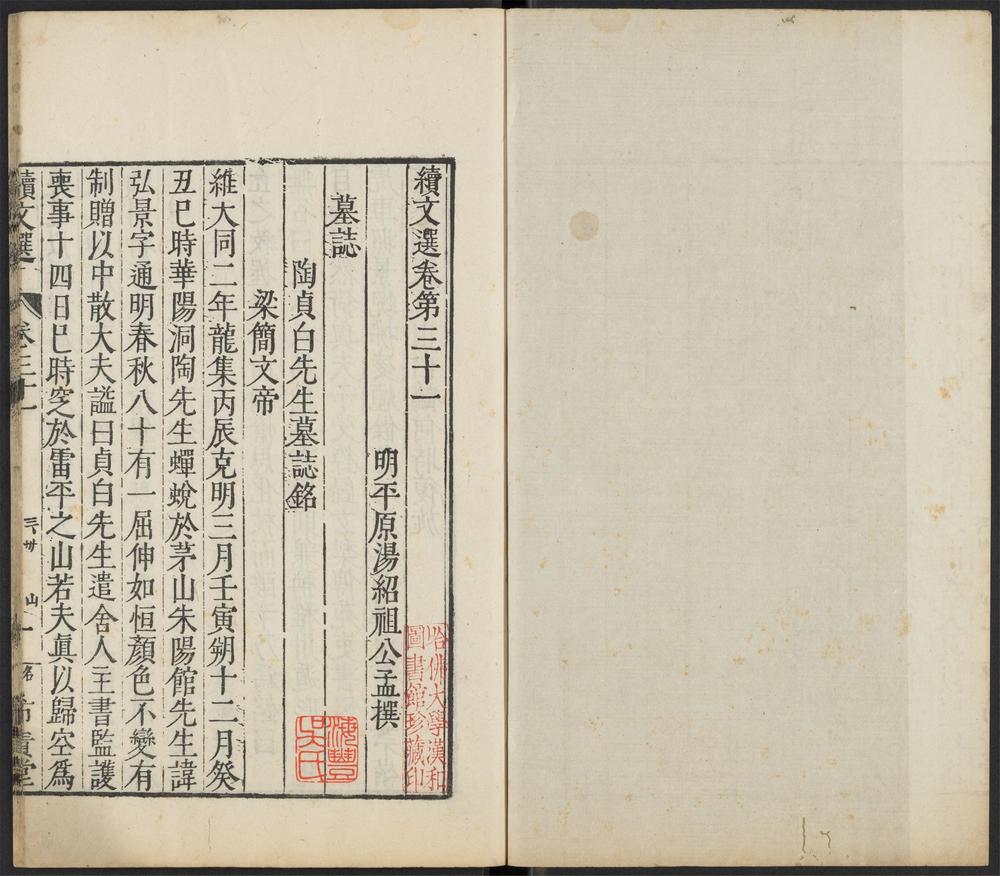 續文選卷第三十一
明平原湯紹祖公孟撰
墓誌
陶貞白先生墓誌銘
梁簡文帝
維大同二年龍集丙辰克明三月壬寅朔十二月癸
丑巳時華陽洞陶先生蟬蛻於茅山朱陽館先生諱
弘景字通明春秋八十有一屈伸如恒顏色不變有
制贈以中散大夫謚曰貞白先生遣舍人主書監護
喪事十四日巳時窆於雷平之山若夫眞以歸空爲
續文選 卷三十一 一 希貴堂
哈佛大學漢和
圖書館珍藏印
海豐
吳氏